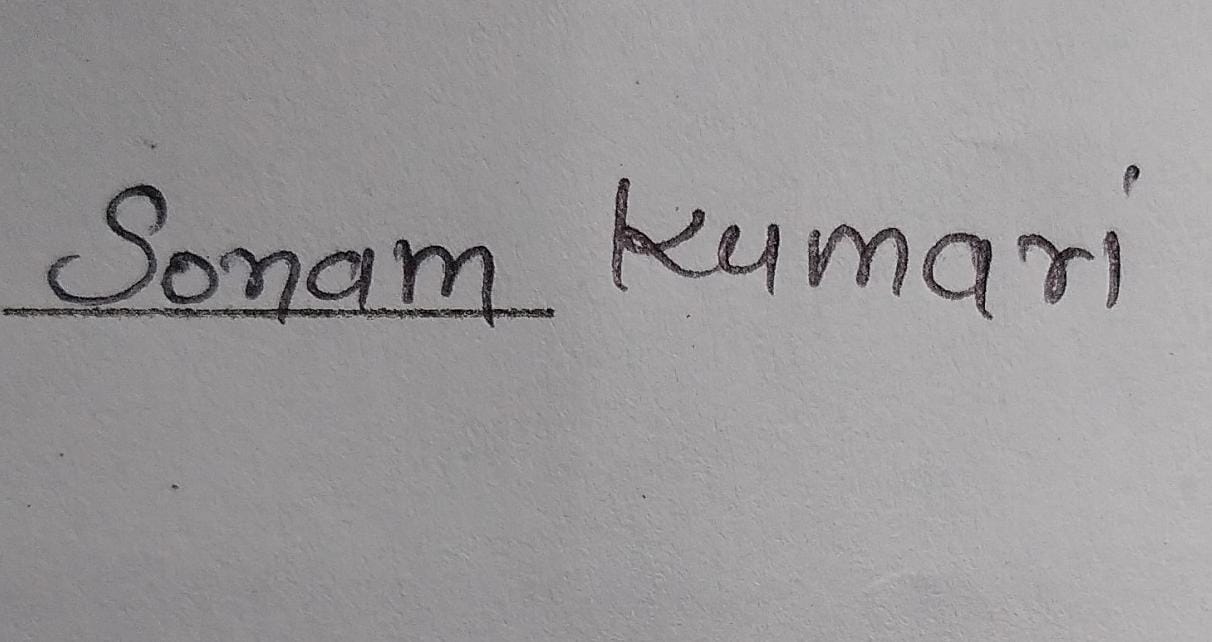 Sonam Kumari